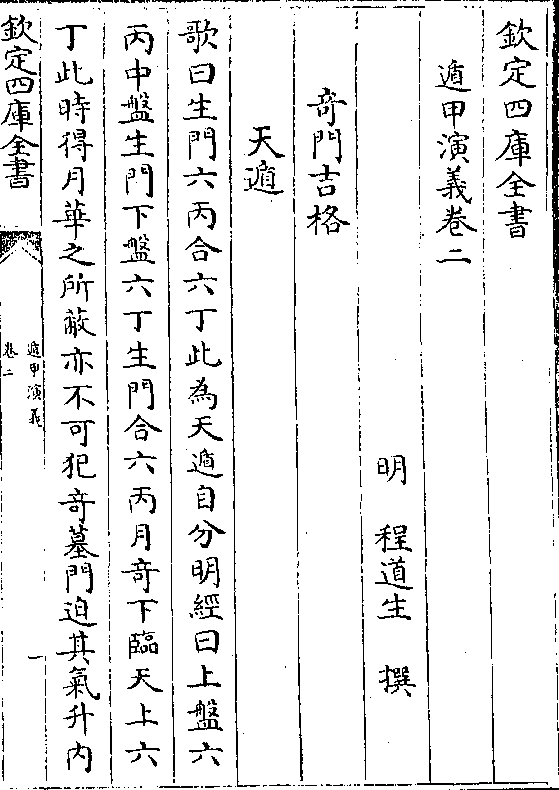 欽定四庫全書
遁甲演義卷二
明 程道生 撰
奇門吉格
天遁
歌曰生門六丙合六丁此為天遁自分明經曰上盤六
丙中盤生門下盤六丁生門合六丙月奇下臨天上六
丁此時得月華之所蔽亦不可犯竒墓門迫其氣升内
欽定四庫全書
遁甲演義
卷二
一